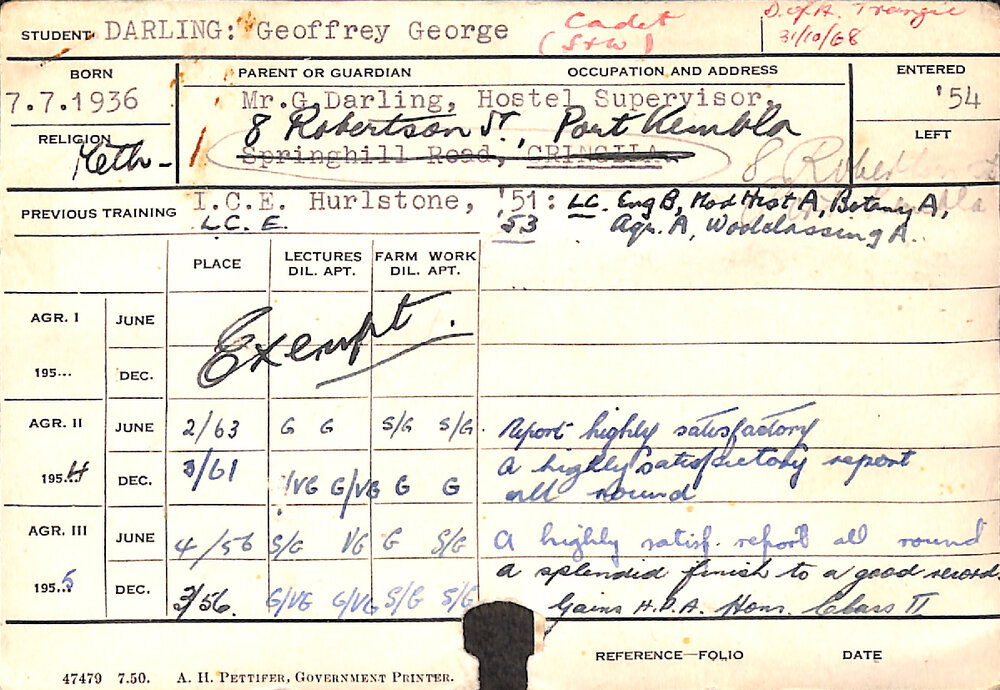 STUDENT DARLING: Geoffrey George
Cadet
(S & W)
D. of A. Trangie
31/10/68
BORN
PARENT OR GUARDIAN
OCCUPATION AND ADDRESS
ENTERED
7.7.1936
Mr.G.Darling, Hostel Supervisor,
'54
8 Robertson St, Port Kembla
RELIGION
LEFT
Meth -
Springhill Road, CRINGILA
8 Robertson
PREVIOUS TRAINING
I.C.E. Hurlstone, '51: LC. Eng B, Mod Hist A, Botany A,
L.C. E. '53 Agr. A, Woolclassing A.
PLACE
LECTURES
DIL. APT.
FARM WORK
DIL. APT.
AGR. I
JUNE
Exempt.
195...
DEC.
AGR. II
JUNE
2/63 G G S/G S/G. Report highly satisfactory
1954
DEC.
3/61 /VG G/VG G G A highly satisfactory report
all round
AGR. III
JUNE
4/56 S/G VG G S/G A highly satisf. report all round
1955
DEC.
3/56. G/VG G/VG S/G S/G a splendid finish to a good record.
Gains H.D.A. Hons. Class II
REFERENCE—FOLIO
DATE
47479 7.50. A. H. PETTIFER, GOVERNMENT PRINTER.